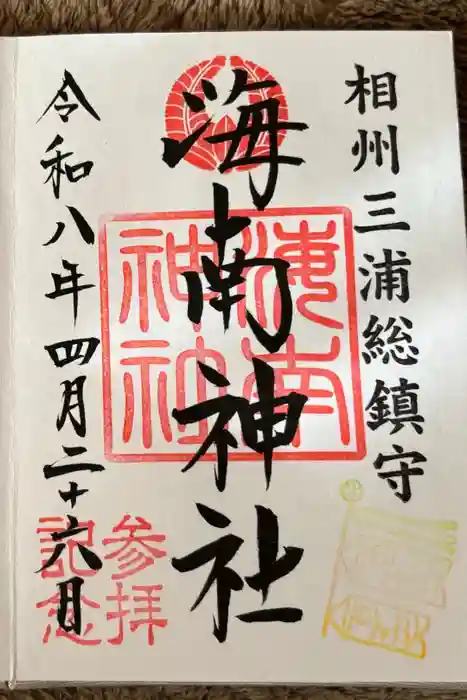 相州三浦総鎮守
海南神社
海南神社
令和八年四月二十六日
参拝記念